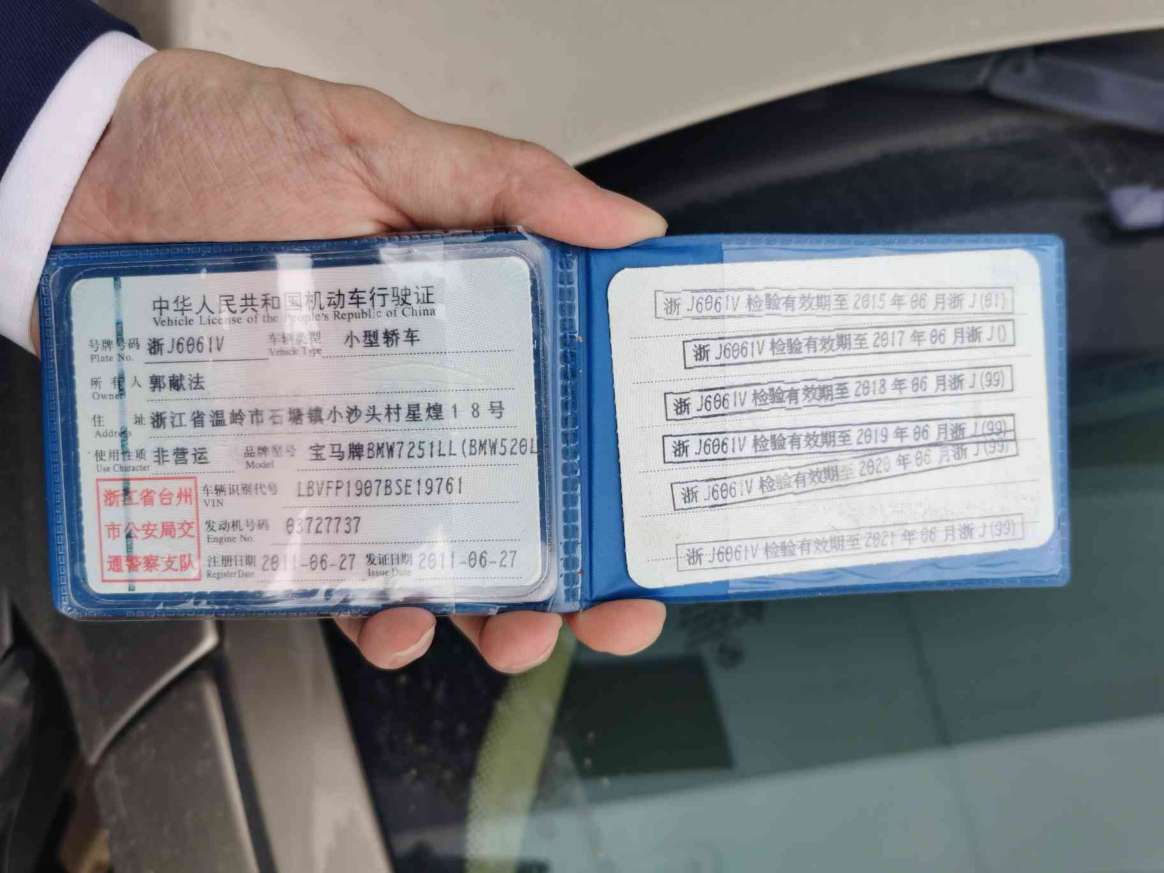 中华人民共和国机动车行驶证
Vehicle License of the People's Republic of China
号牌号码 浙J6061V 车辆类型 小型轿车
Plate No. Vehicle Type
所有人 郭献法
Owner
住址 浙江省温岭市石塘镇小沙头村星煌18号
Address
使用性质 非营运 品牌型号 宝马牌BMW7251LL(BMW520L
Use Character Model
浙江省台州
市公安局交
通警察支队
车辆识别代号 LBVFP1907BSE19761
VIN
发动机号码 03727737
Engine No.
注册日期 2011-06-27 发证日期 2011-06-27
Register Date Issue Date
浙J6061V 检验有效期至2015年06月浙J(01)
浙J6061V 检验有效期至2017年06月浙J()
浙J6061V 检验有效期至2018年06月浙J(99)
浙J6061V 检验有效期至2019年06月浙J(99)
浙J6061V 检验有效期至2020年06月浙J(99)
浙J6061V 检验有效期至2021年06月浙J(99)